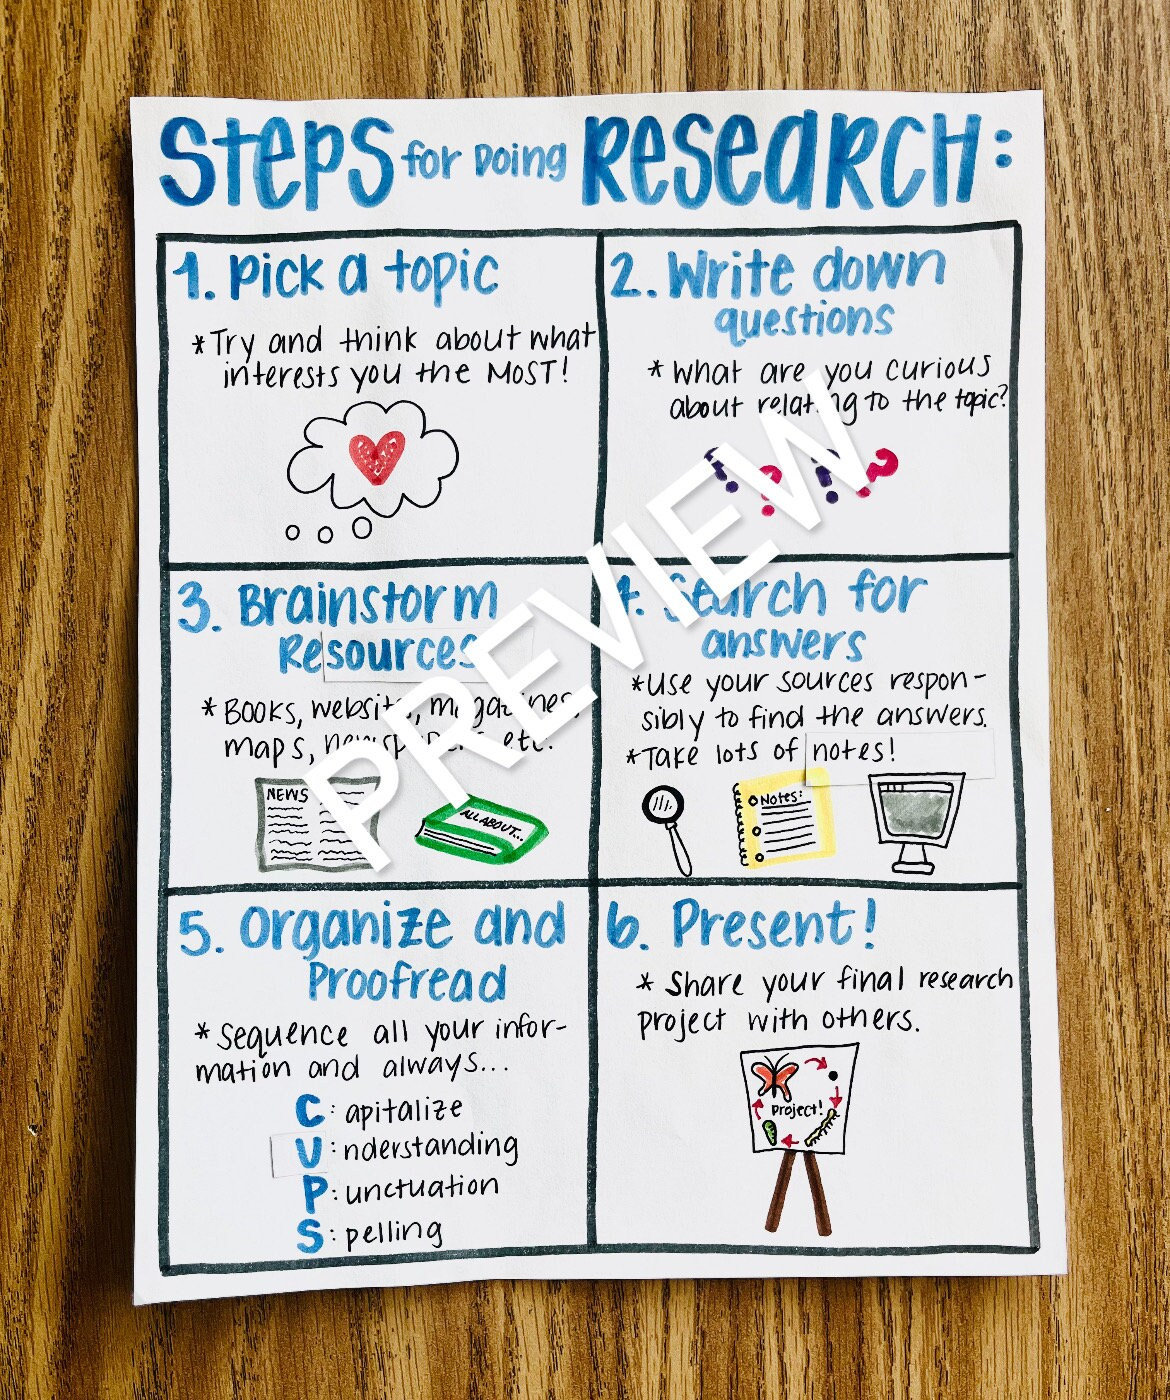 Steps for Doing Research:
1. Pick a topic
*Try and think about what
interests you the MOST!
2. Write down
questions
* What are you curious
about relating to the topic?
? ? ? ?
3. Brainstorm
Resources
* Books, websites, magazines,
maps, newspapers, etc.
NEWS
ALL ABOUT...
4. Search for
answers
*Use your sources respon-
sibly to find the answers.
*Take lots of notes!
Notes:
5. Organize and
Proofread
* Sequence all your infor-
mation and always...
C: apitalize
U: nderstanding
P: unctuation
S: pelling
6. Present!
* Share your final research
project with others.
Project!
PREVIEW